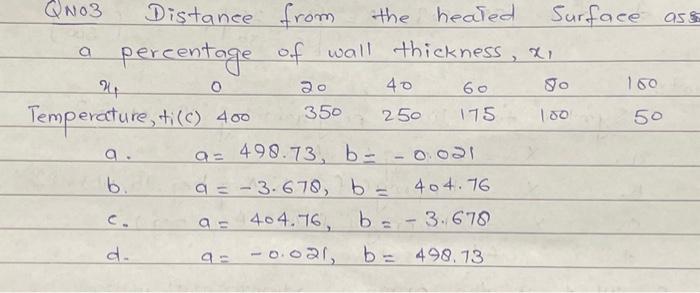 QNO3 Distance from the heated Surface as
a percentage of wall thickness, x1
x1 0 20 40 60 80 100
Temperature, ti(c) 400 350 250 175 100 50
a. a = 498.73, b = - 0.021
b. a = -3.678, b = 404.76
c. a = 404.76, b = - 3.678
d. a = -0.021, b = 498.73